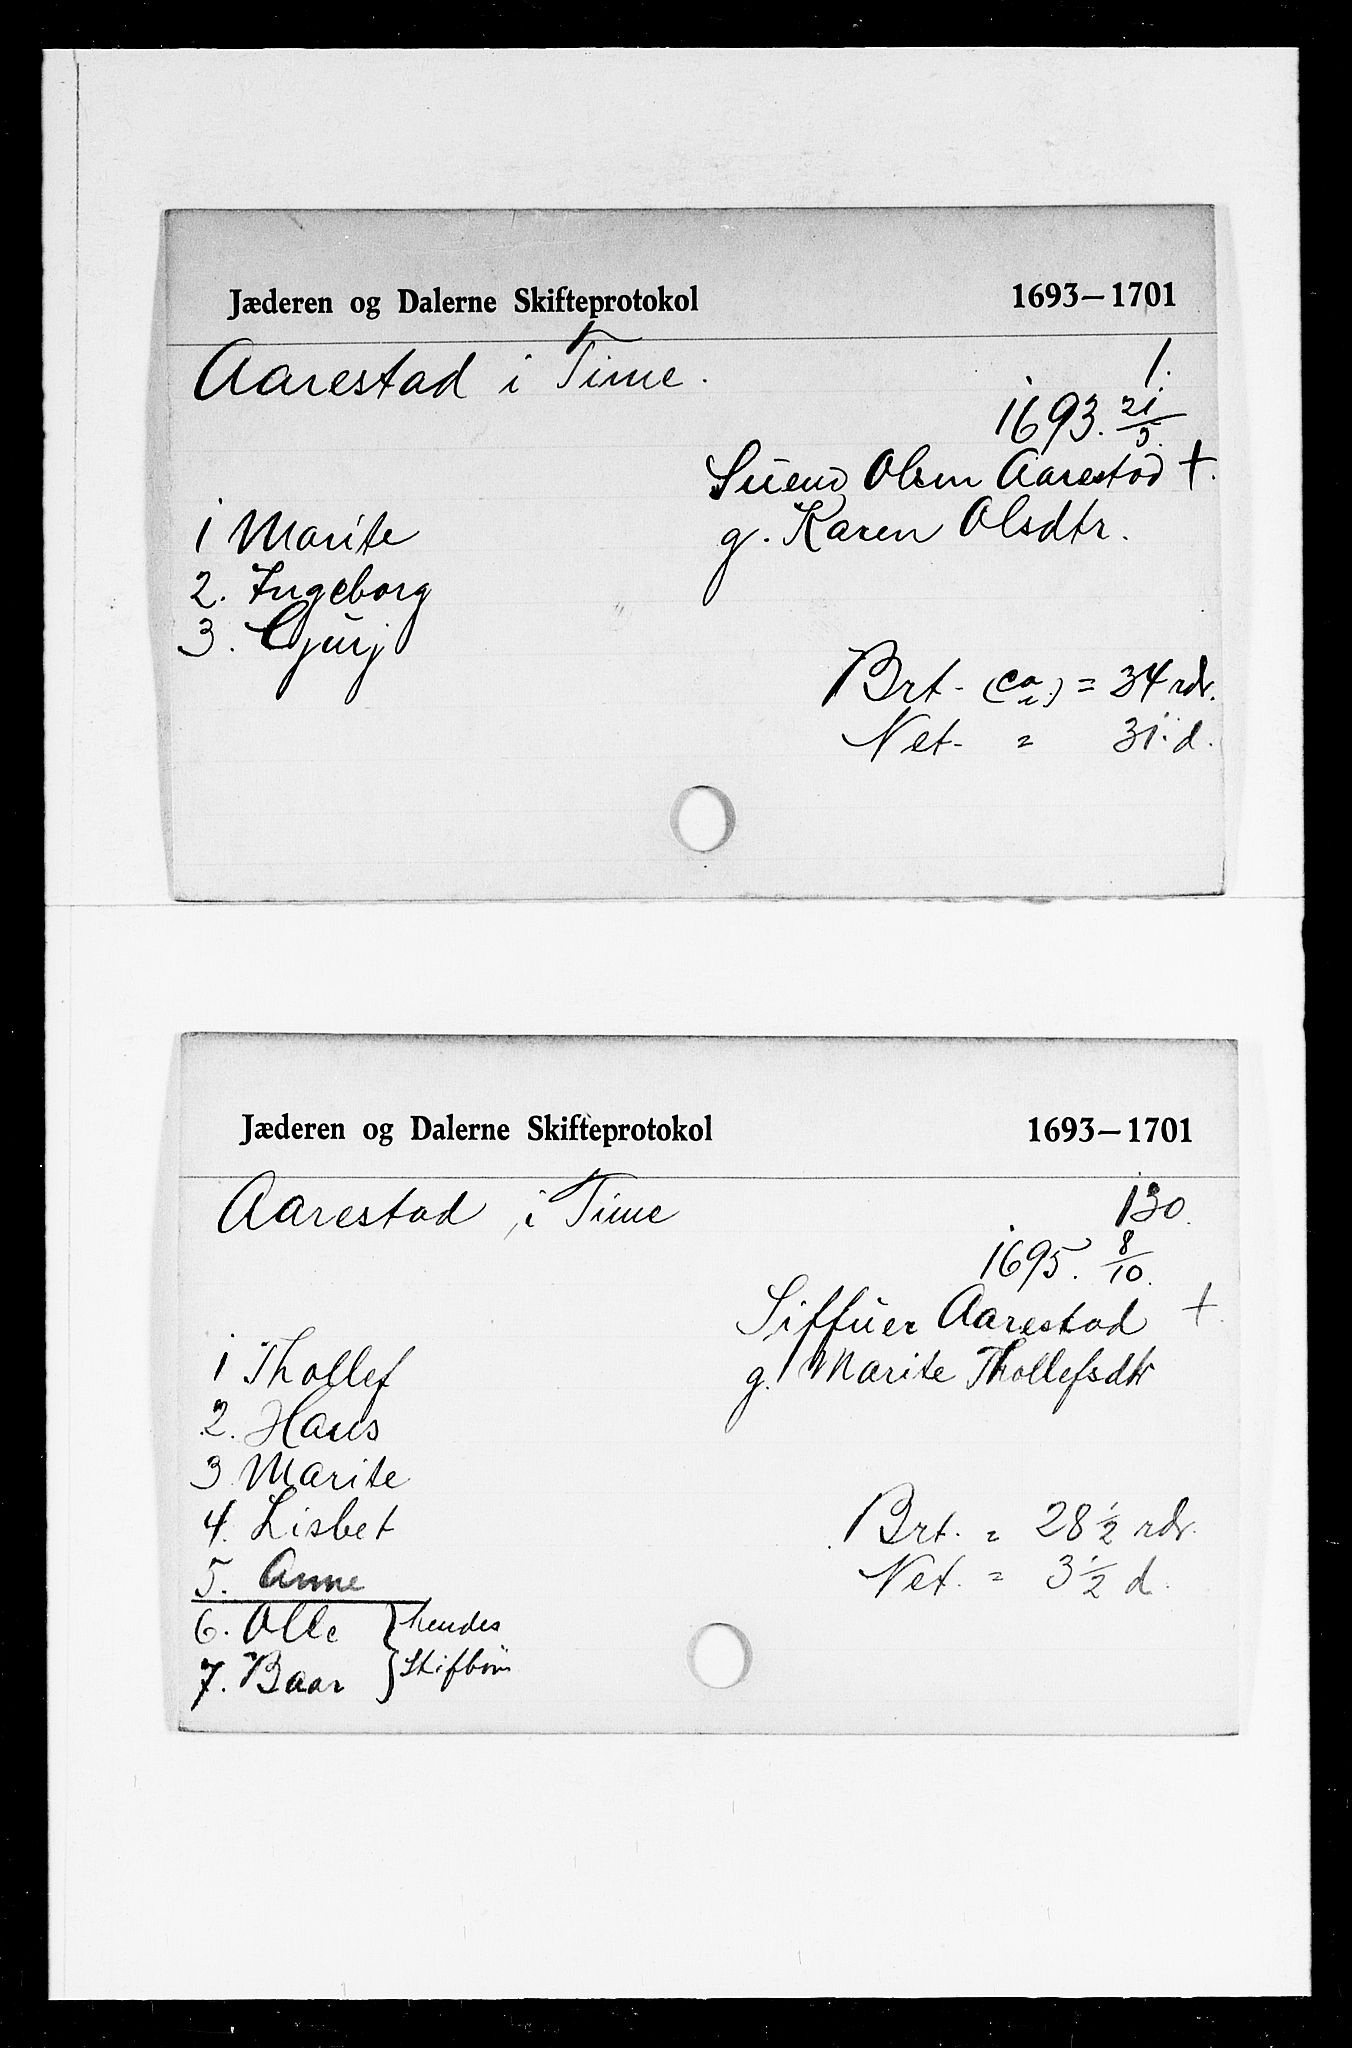 Jæderen og Dalerne Skifteprotokol 1693–1701
Aarestad i Time. 1.
1693. 21/5.
Suend Olsen Aarestad +.
g. Karen Olsdtr.
1 Marite
2. Ingeborg
3. Gjurj
Brt. (ca) = 34 rdr.
Net. = 31 d.
Jæderen og Dalerne Skifteprotokol 1693–1701
Aarestad i Time 130.
1695. 8/10.
Siffuer Aarestad +.
g. Marite Thollefsdtr
1 Thollef
2. Hans
3 Marite
4. Lisbet
5. Anne
6. Olle } hendes
7. Baar } Stifbörn
Brt. = 28 1/2 rdr.
Net. = 3 1/2 d.